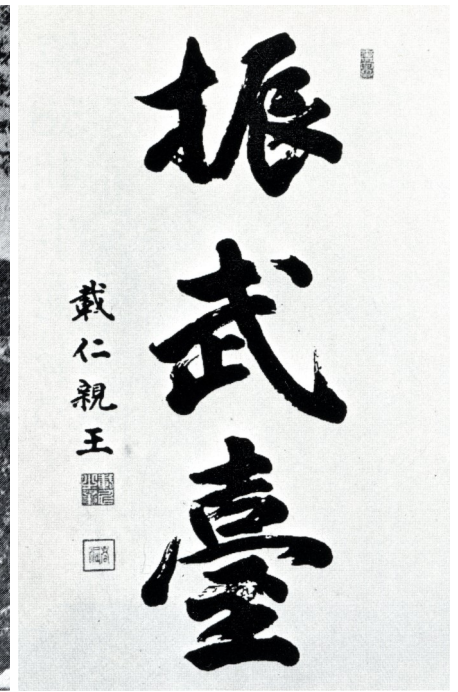 振武臺
載仁親王